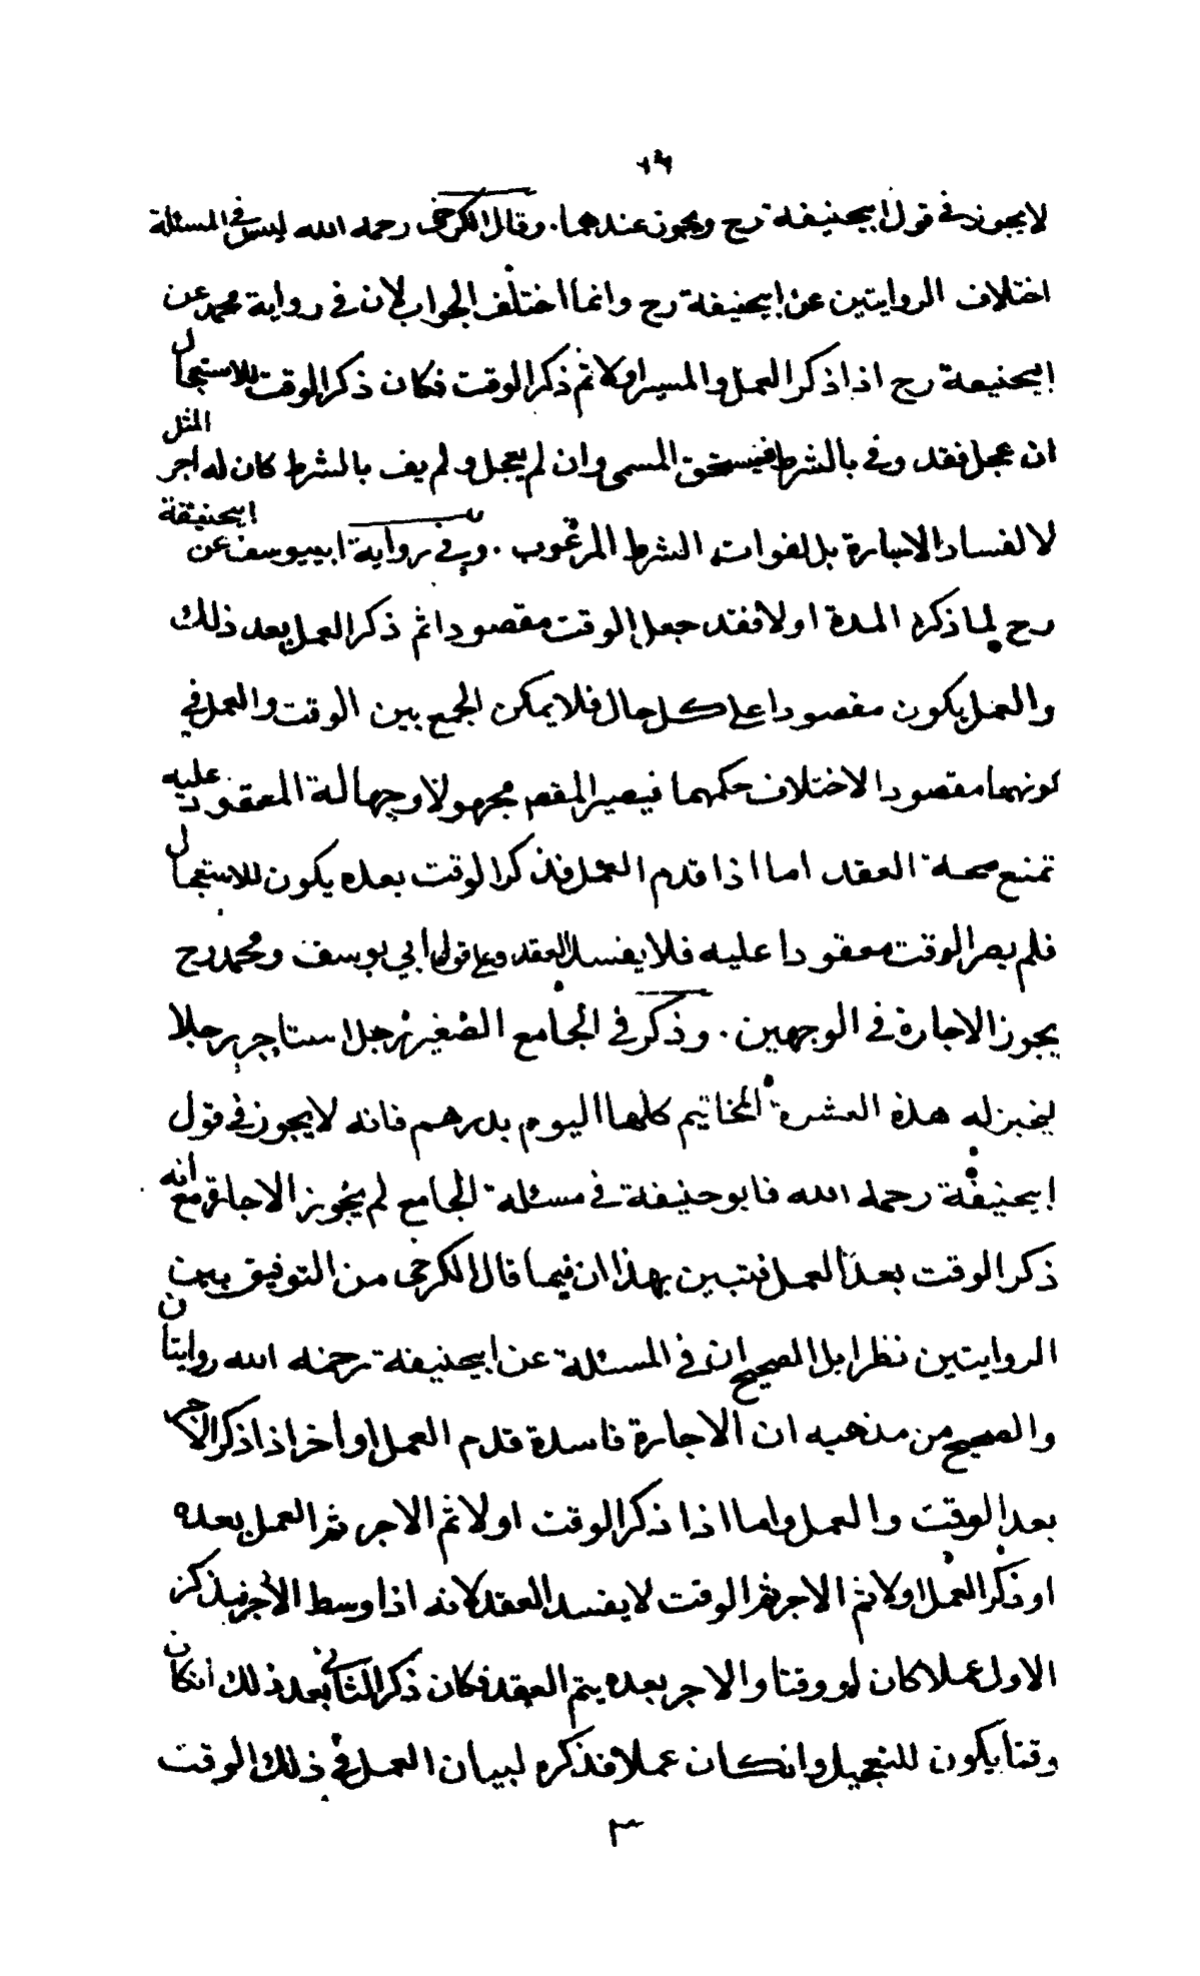 لا يجوز في قول ابيحنيفة رح ويجوز عندهما . وقال الكرخي رحمه الله ليس في المسئلة
اختلاف الروايتين عن ابيحنيفة رح وانما اختلف الجواب لان في رواية محمد عن
ابيحنيفة رح اذا ذكر العمل والمسير اولا ثم ذكر الوقت فكان ذكر الوقت للاستعجال
ان عجل فقد وفى بالشرط فيستحق المسمى وان لم يعجل ولم يف بالشرط كان له اجر المثل
لا لفساد الاجارة بل لفوات الشرط المرغوب . وفي رواية ابييوسف عن ابيحنيفة
رح لما ذكر المدة اولا فقد جعل الوقت مقصودا ثم ذكر العمل بعد ذلك
والعمل يكون مقصودا على كل حال فلا يمكن الجمع بين الوقت والعمل في
كونهما مقصودا لاختلاف حكمهما فيصير المقصم مجهولا وجهالة المعقود عليه
تمنع صحة العقد اما اذا قدم العمل فذكر الوقت بعده يكون للاستعجال
فلم يصر الوقت معقودا عليه فلا يفسد العقد وعلى قول ابي يوسف ومحمد رح
يجوز الاجارة في الوجهين . وذكر في الجامع الصغير رجل استاجر رجلا
ليخبز له هذه العشرة المخاتيم كلها اليوم بدرهم فانه لا يجوز في قول
ابيحنيفة رحمه الله فابو حنيفة في مسئلة الجامع لم يجوز الاجارة مع انه
ذكر الوقت بعد العمل فتبين بهذا ان فيما قال الكرخي من التوفيق بين
الروايتين نظرا بل الصحيح ان في المسئلة عن ابيحنيفة رحمه الله روايتان
والصحيح من مذهبه ان الاجارة فاسدة قدم العمل او أخر اذا ذكر الاجر
بعد الوقت والعمل واما اذا ذكر الوقت اولا ثم الاجر ثم العمل بعده
او ذكر العمل اولا ثم الاجر ثم الوقت لا يفسد العقد لانه اذا وسط الأجر فبذكر
الاول عملا كان او وقتا والاجر بعده يتم العقد فكان ذكر الثاني بعد ذلك انكان
وقتا يكون للتعجيل وانكان عملا فذكره لبيان العمل في ذلك الوقت